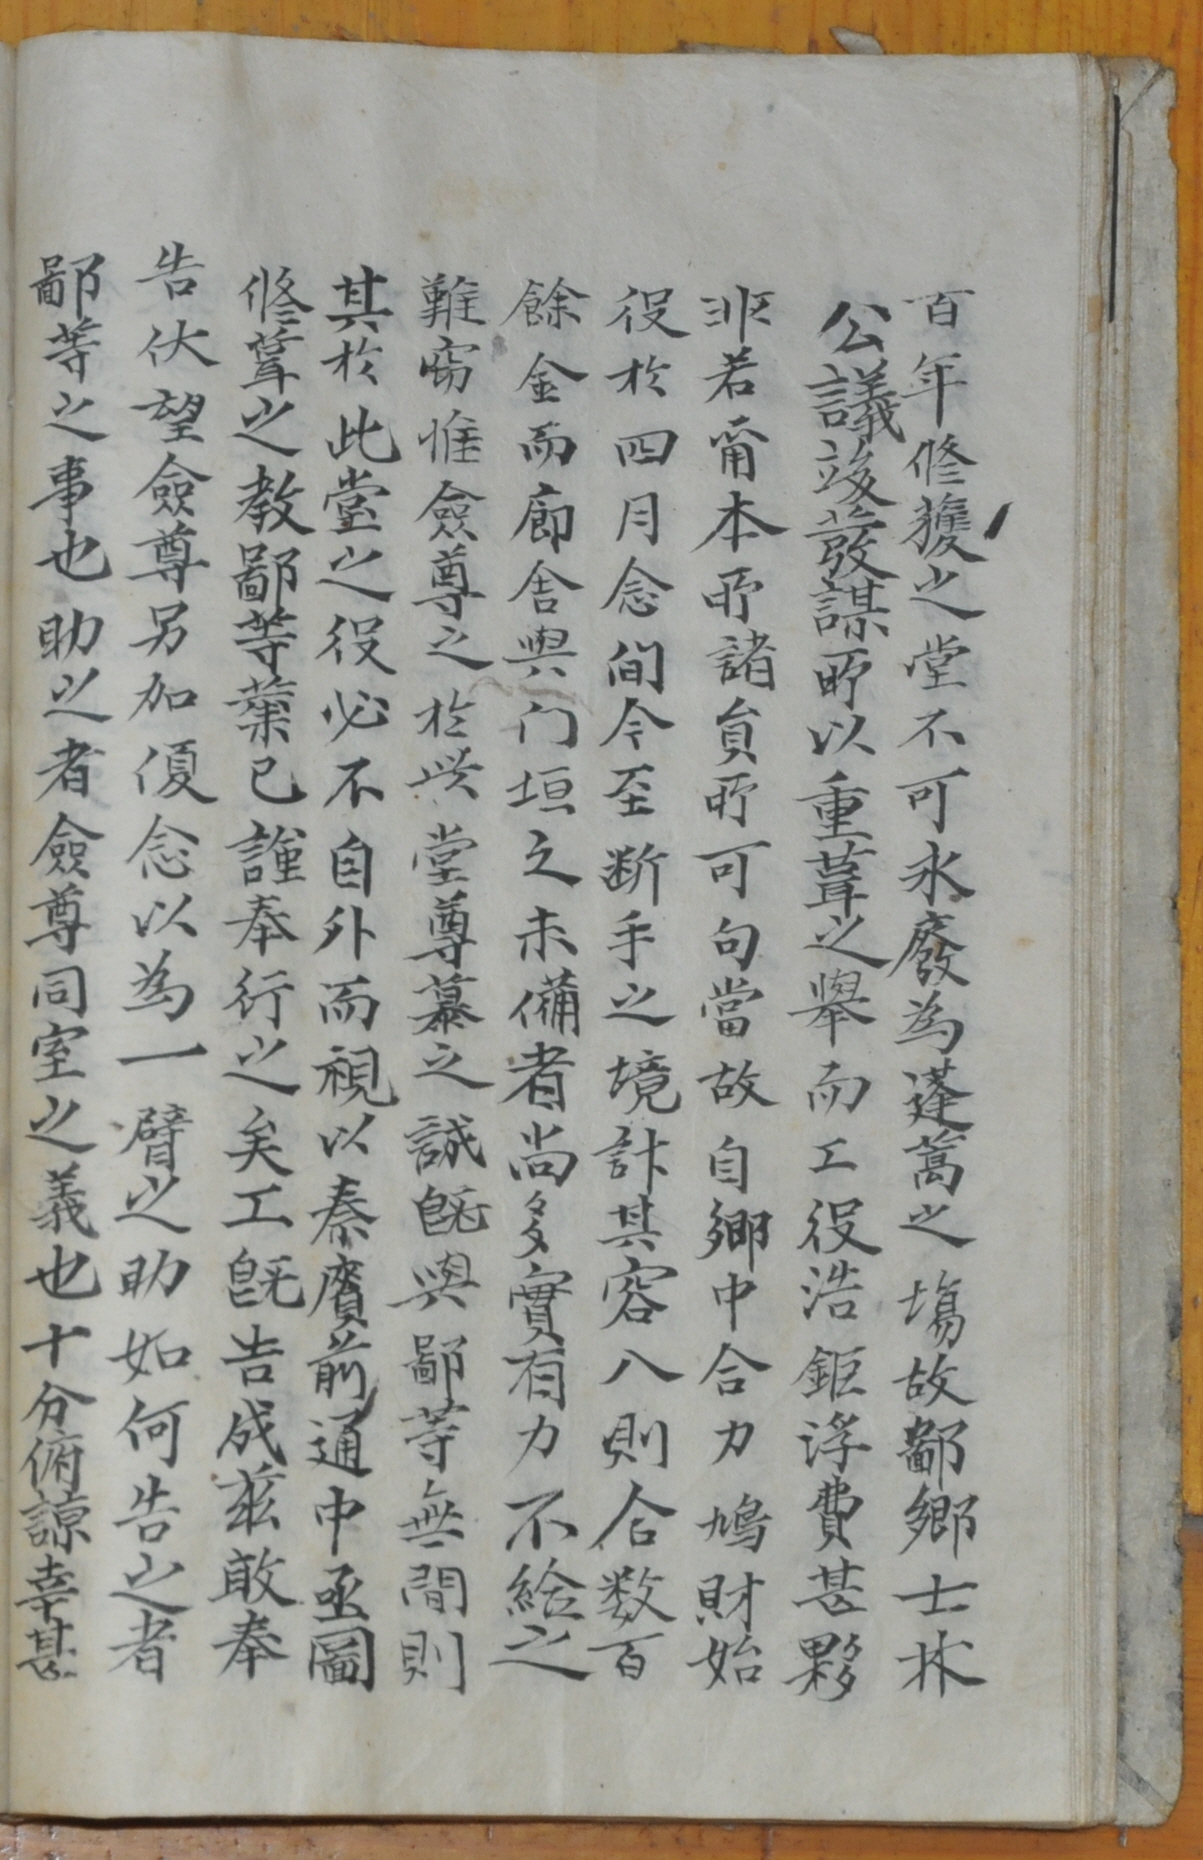 百年修護之堂不可永廢為蓬蒿之場故鄙鄕士林
公議竣發謀所以重葺之擧而工役浩鉅浮費甚夥
非若甯本所諸員所可句當故自鄕中合力鳩財始
役於四月念間今至断手之境計其容入則合数百
餘金而廊舍與门垣之未備者尚多實有力不給之
難窃惟僉尊之於此堂尊慕之誠旣與鄙等無間則
其於此堂之役必不自外而視以秦瘠前通中亟圖
修葺之教鄙等業已謹奉行之矣工旣告成玆敢奉
告伏望僉尊另加優念以為一臂之助如何告之者
鄙等之事也助之者僉尊同室之義也十分俯諒幸甚